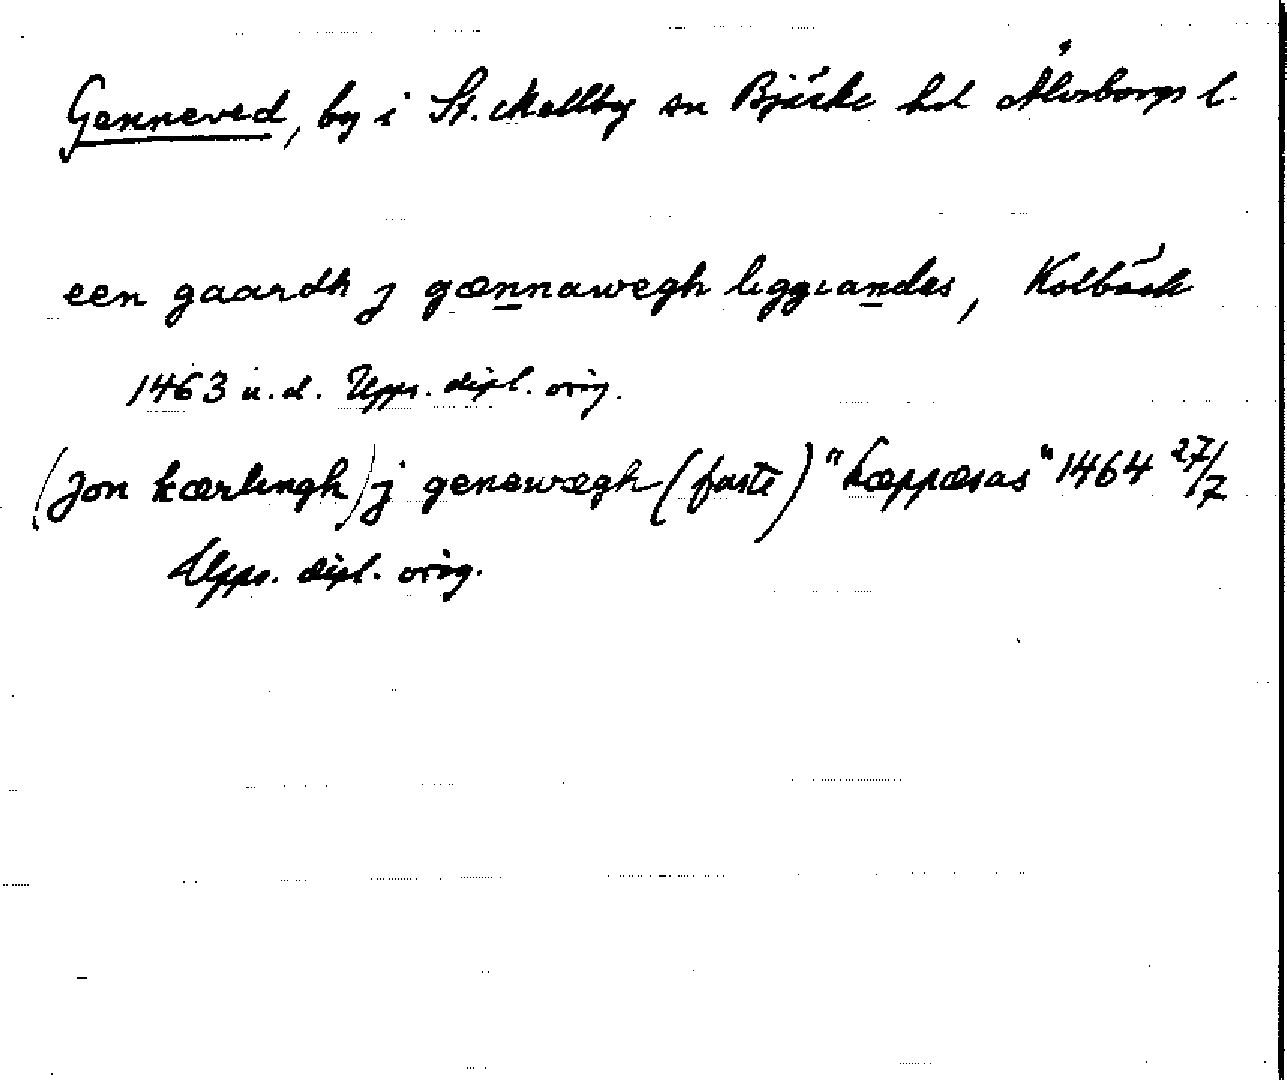 Genneved, by i St. Mellby sn Bjärke hd Älvsborgs l.
een gaardh j gænnawegh liggiandes, Kolbäck
1463 u.d. Upps. dipl. orig.
(Jon kærlingh) j genawægh (faste) "Kæppæsas" 1464 27/7
Upps. dipl. orig.